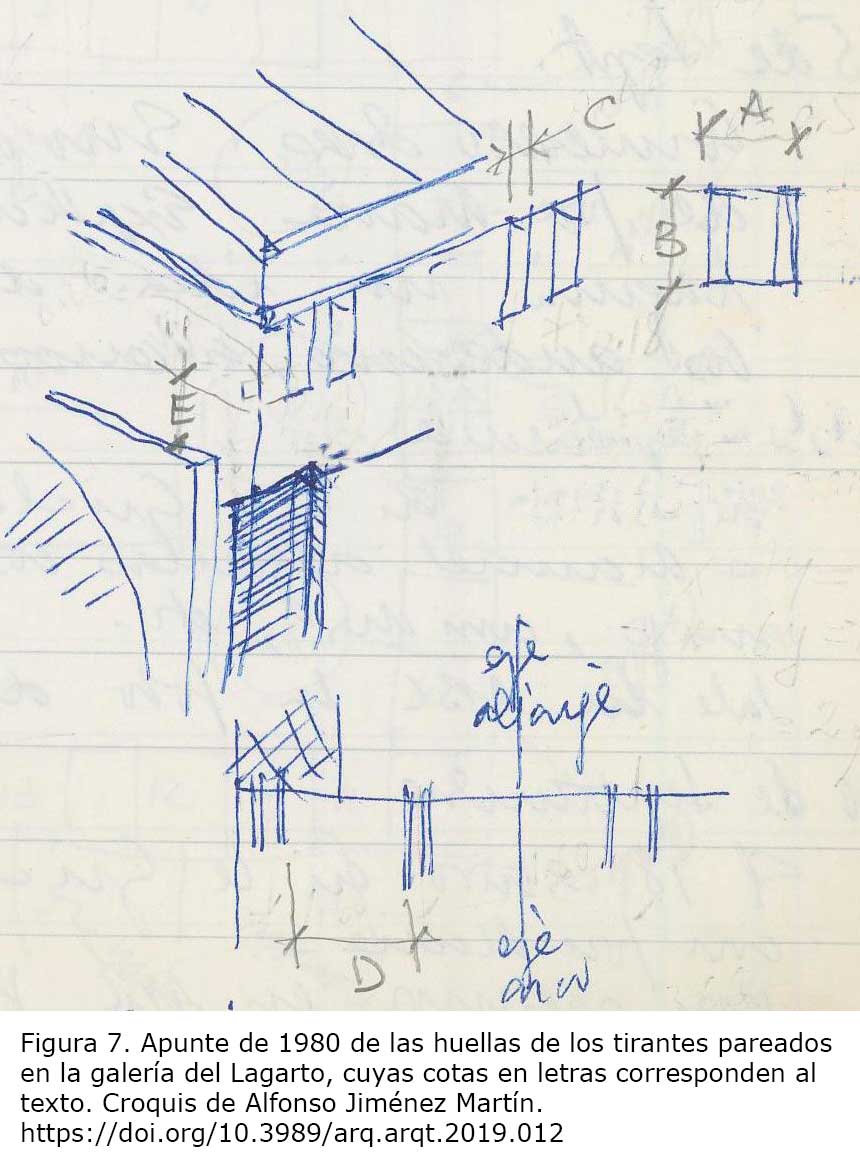 C
A
B
E
eje
alfarje
D
eje
arco
Figura 7. Apunte de 1980 de las huellas de los tirantes pareados
en la galería del Lagarto, cuyas cotas en letras corresponden al
texto. Croquis de Alfonso Jiménez Martín.
https://doi.org/10.3989/arq.arqt.2019.012